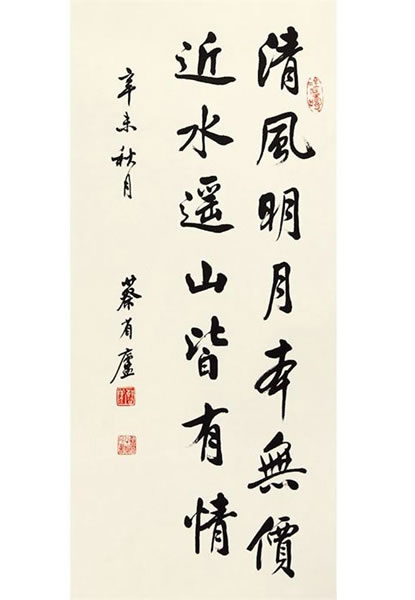 清風明月本無價
近水遥山皆有情
辛未秋月
蔡省廬